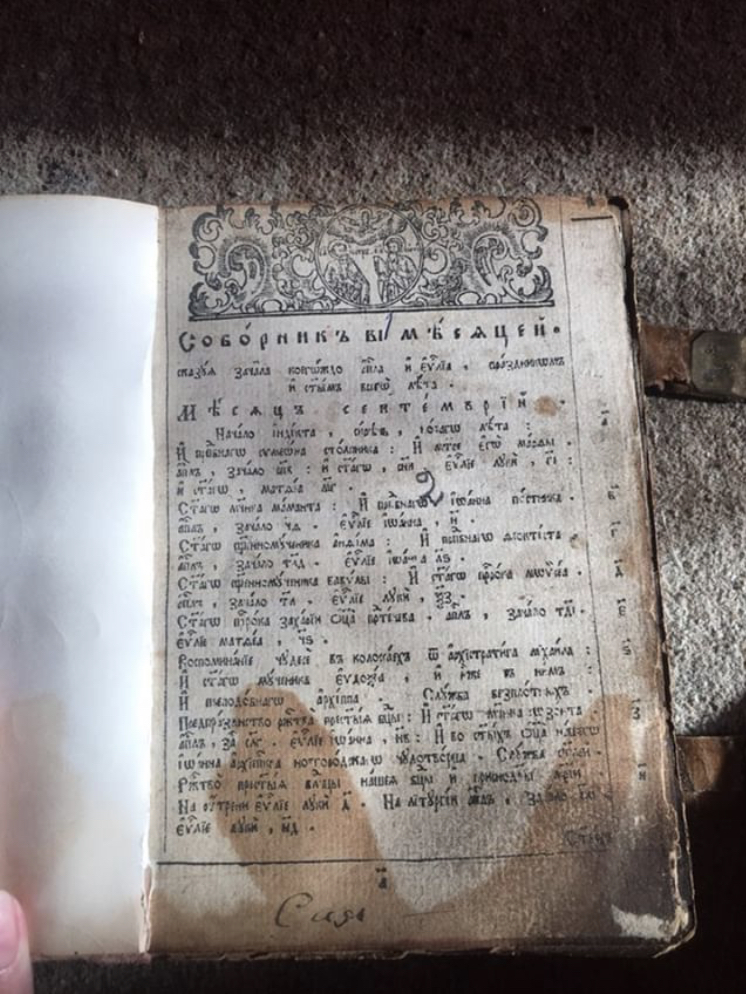 Собо́рникъ в҃і мѣ́сяцей.
сказу́я зача́ла коегѡ́ждо а҆пⷭ҇ла и҆ є҆ѵⷢ҇лїа, пра́здникѡмъ
и҆ ст҃ы́мъ всегѡ̀ лѣ́та.
Мѣ́сяцъ септе́мврїй.
Нача́ло і҆ндї́кта, но́вагѡ лѣ́та:
а҃
И҆ прпⷣбнагѡ симеѡ́на сто́лпника: И҆ ма́рѳы.
а҆пⷭ҇лъ, зача́ло: и҆ ст҃а́гѡ, є҆ѵⷢ҇лїе луки̑,
и҆ ст҃а́гѡ, матѳе́а
2
в҃
Ст҃а́гѡ мч҃нка ма́манта: И҆ прпⷣбнагѡ і҆ѡа́нна по́стника.
а҆пⷭ҇лъ, зача́ло. є҆ѵⷢ҇лїе і҆ѡа́нна, н҃.
г҃
Ст҃а́гѡ сщ҃енномч҃еника а҆нѳі́ма: И҆ прпⷣбнагѡ ѳеокти́ста.
а҆пⷭ҇лъ, зача́ло. є҆ѵⷢ҇лїе і҆ѡа́нна л҃ѕ.
д҃
Ст҃а́гѡ сщ҃енномч҃еника вавѵ́лы: И҆ ст҃а́гѡ прⷪ҇ро́ка мѡѷсе́а.
а҆пⷭ҇лъ, зача́ло т҃л. є҆ѵⷢ҇лїе луки̑, ѯ҃з.
є҃
Ст҃а́гѡ прⷪ҇ро́ка заха́рїи ѻ҆ц҃а̀ прⷣте́чева. а҆пⷭ҇лъ, зача́ло т҃ді.
є҆ѵⷢ҇лїе матѳе́а, ч҃ѕ.
ѕ҃
Воспомина́нїе чудесѐ въ колосса́ехъ ѿ а҆рхїстрати́га мїхаи́ла:
И҆ ст҃а́гѡ му́ченика є҆ѵдо́ѯїа, и҆ и҆́же въ ни́мъ:
И҆ преподо́бнагѡ а҆рхі́ппа. Слу́жба безпло́тныхъ.
з҃
Предпра́зднство ржⷭ҇тва̀ прест҃ы́я бц҃ы: И҆ ст҃а́гѡ мч҃нка сѡ́зонта.
а҆пⷭ҇лъ, є҆ѵⷢ҇лїе і҆ѡа́нна: И҆ во ст҃ы́хъ ѻ҆ц҃а̀ на́шегѡ
і҆ѡа́нна а҆рхїепⷭ҇кпа новгоро́дскагѡ чудотво́рца. Слу́жба
и҃
Ржⷭ҇тво̀ прест҃ы́я влⷣцы на́шея бц҃ы и҆ приснодв҃ы мр҃і́и.
На ᲂу҆́трени є҆ѵⷢ҇лїе луки̑ д҃. На лїтургі́и а҆пⷭ҇лъ, зача́ло
є҆ѵⷢ҇лїе луки̑, н҃д.
а҃